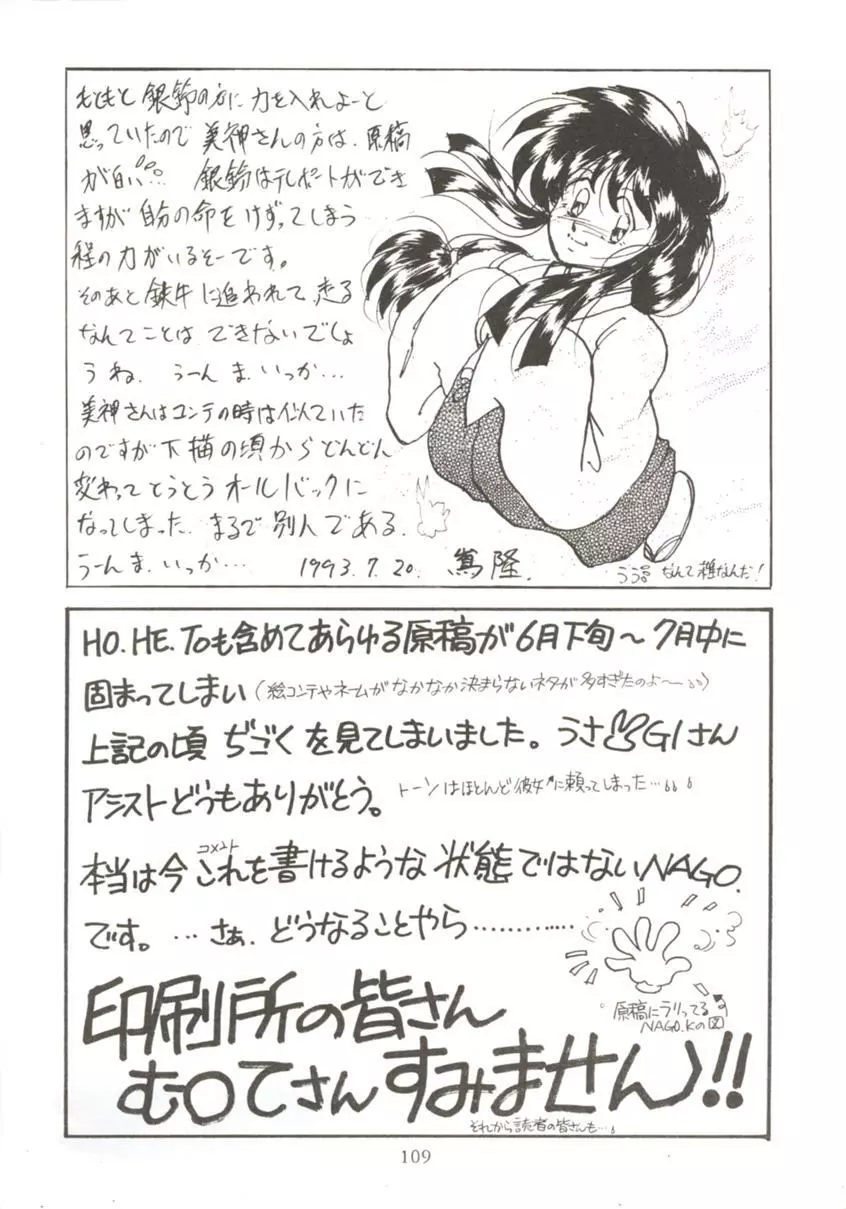 もともと銀鈴の方に力を入れよーと
思っていたので美神さんの方は、原稿
が白い… 銀鈴はテレポートができ
ますが自分の命をけずってしまう
程の力がいるそーです。
そのあと鉄牛に追われて、走る
なんてことは できないでしょ
うね、 うーん ま、いっか…
美神さんはコンテの時は似ていた
のですが下描の頃からどんどん
変わってとうとうオールバックに
なってしまった、まるで別人である、
うーん ま、いっか… 1993.7.20. 嵩 隆.
なんて雑なんだ!
HO.HE.Toも含めてあらゆる原稿が6月下旬〜7月中に
固まってしまい(絵コンテやネームがなかなか決まらないネタが多すぎたのよ〜)
上記の頃 ぢごくを見てしまいました。うさGIさん
アシストどうもありがとう。トーンはほとんど彼女に頼ってしまった…
コメント
本当は今これを書けるような状態ではないNAGO.
です。…さぁ、どうなることやら…………
原稿にラリってる
NAGO.Kの図
印刷所の皆さん
む○てさんすみませんっ!!
それから読者の皆さんも…
109